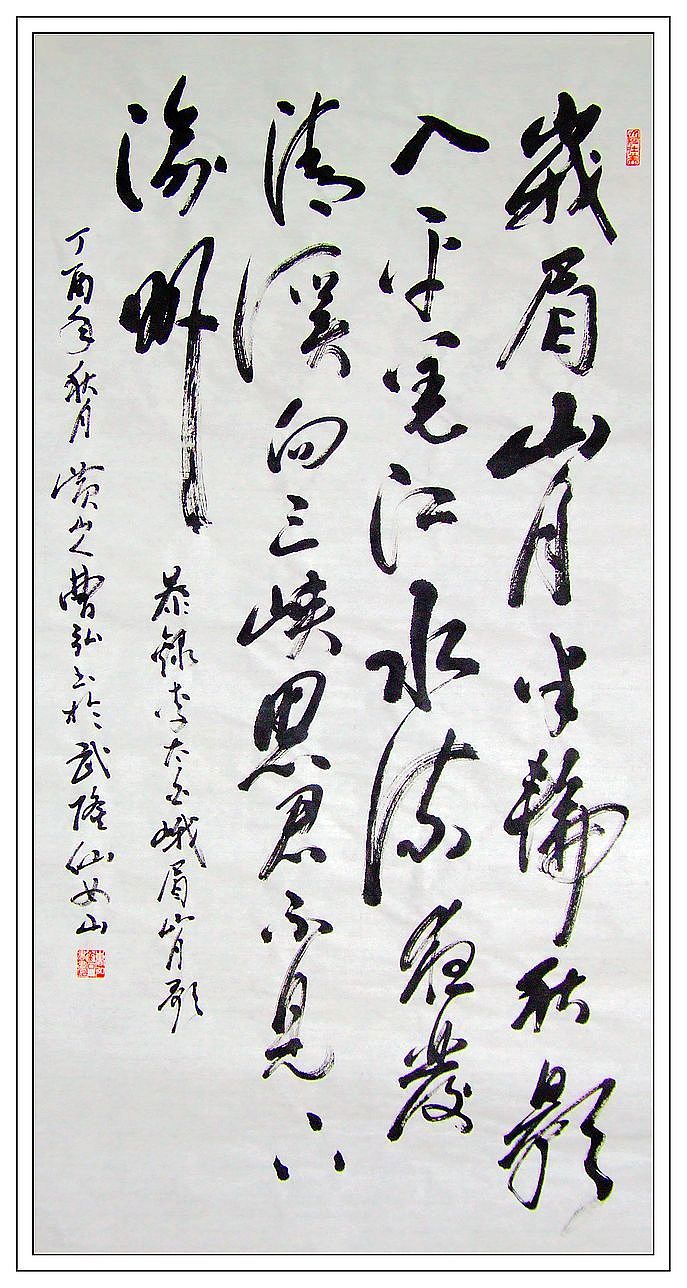 峨眉山月半輪秋影
入平羌江水流夜發
清溪向三峽思君不見下
渝州
恭録李太白峨眉山月歌
丁酉年秋月 黄山人曹弘书於武隆仙女山